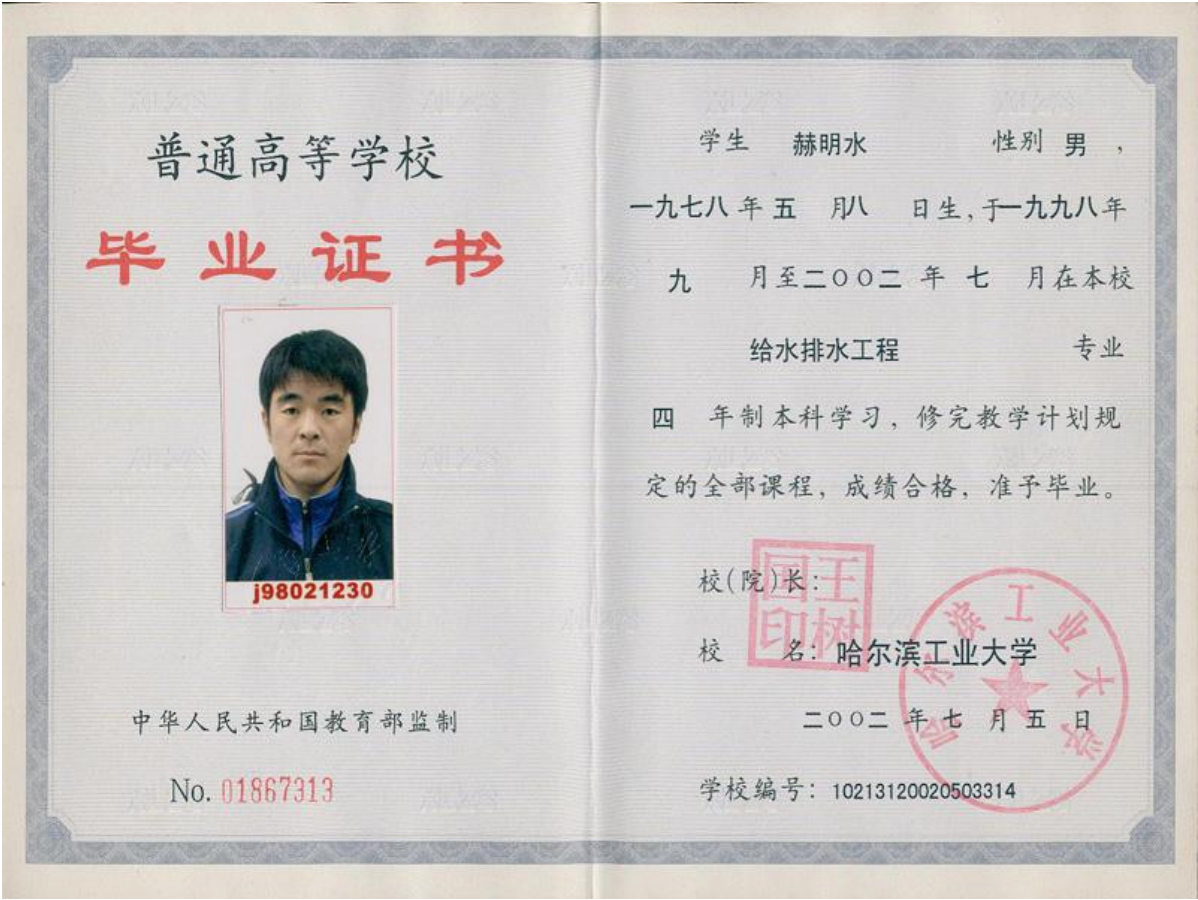 普通高等学校
毕业证书
j98021230
中华人民共和国教育部监制
No. 01867313
学生 赫明水 性别 男 ，
一九七八年五 月八 日生，于一九九八年
九 月至二〇〇二 年 七 月在本校
给水排水工程 专业
四 年制本科学习，修完教学计划规
定的全部课程，成绩合格，准予毕业。
校(院)长：
国王
印树
校 名：哈尔滨工业大学
二〇〇二 年 七 月 五 日
哈尔滨工业大学
学校编号：10213120020503314